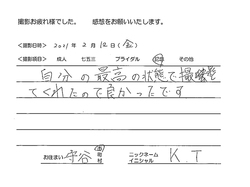 撮影お疲れ様でした。 感想をお願いいたします。
●撮影日時》 2021年 2月 12日 (金)
●撮影項目》 成人 七五三 ブライダル 記念 その他
自分の最高の状態で撮影を
してくれたので良かったです
お住まい 守谷 市 町 村 ニックネーム イニシャル K T